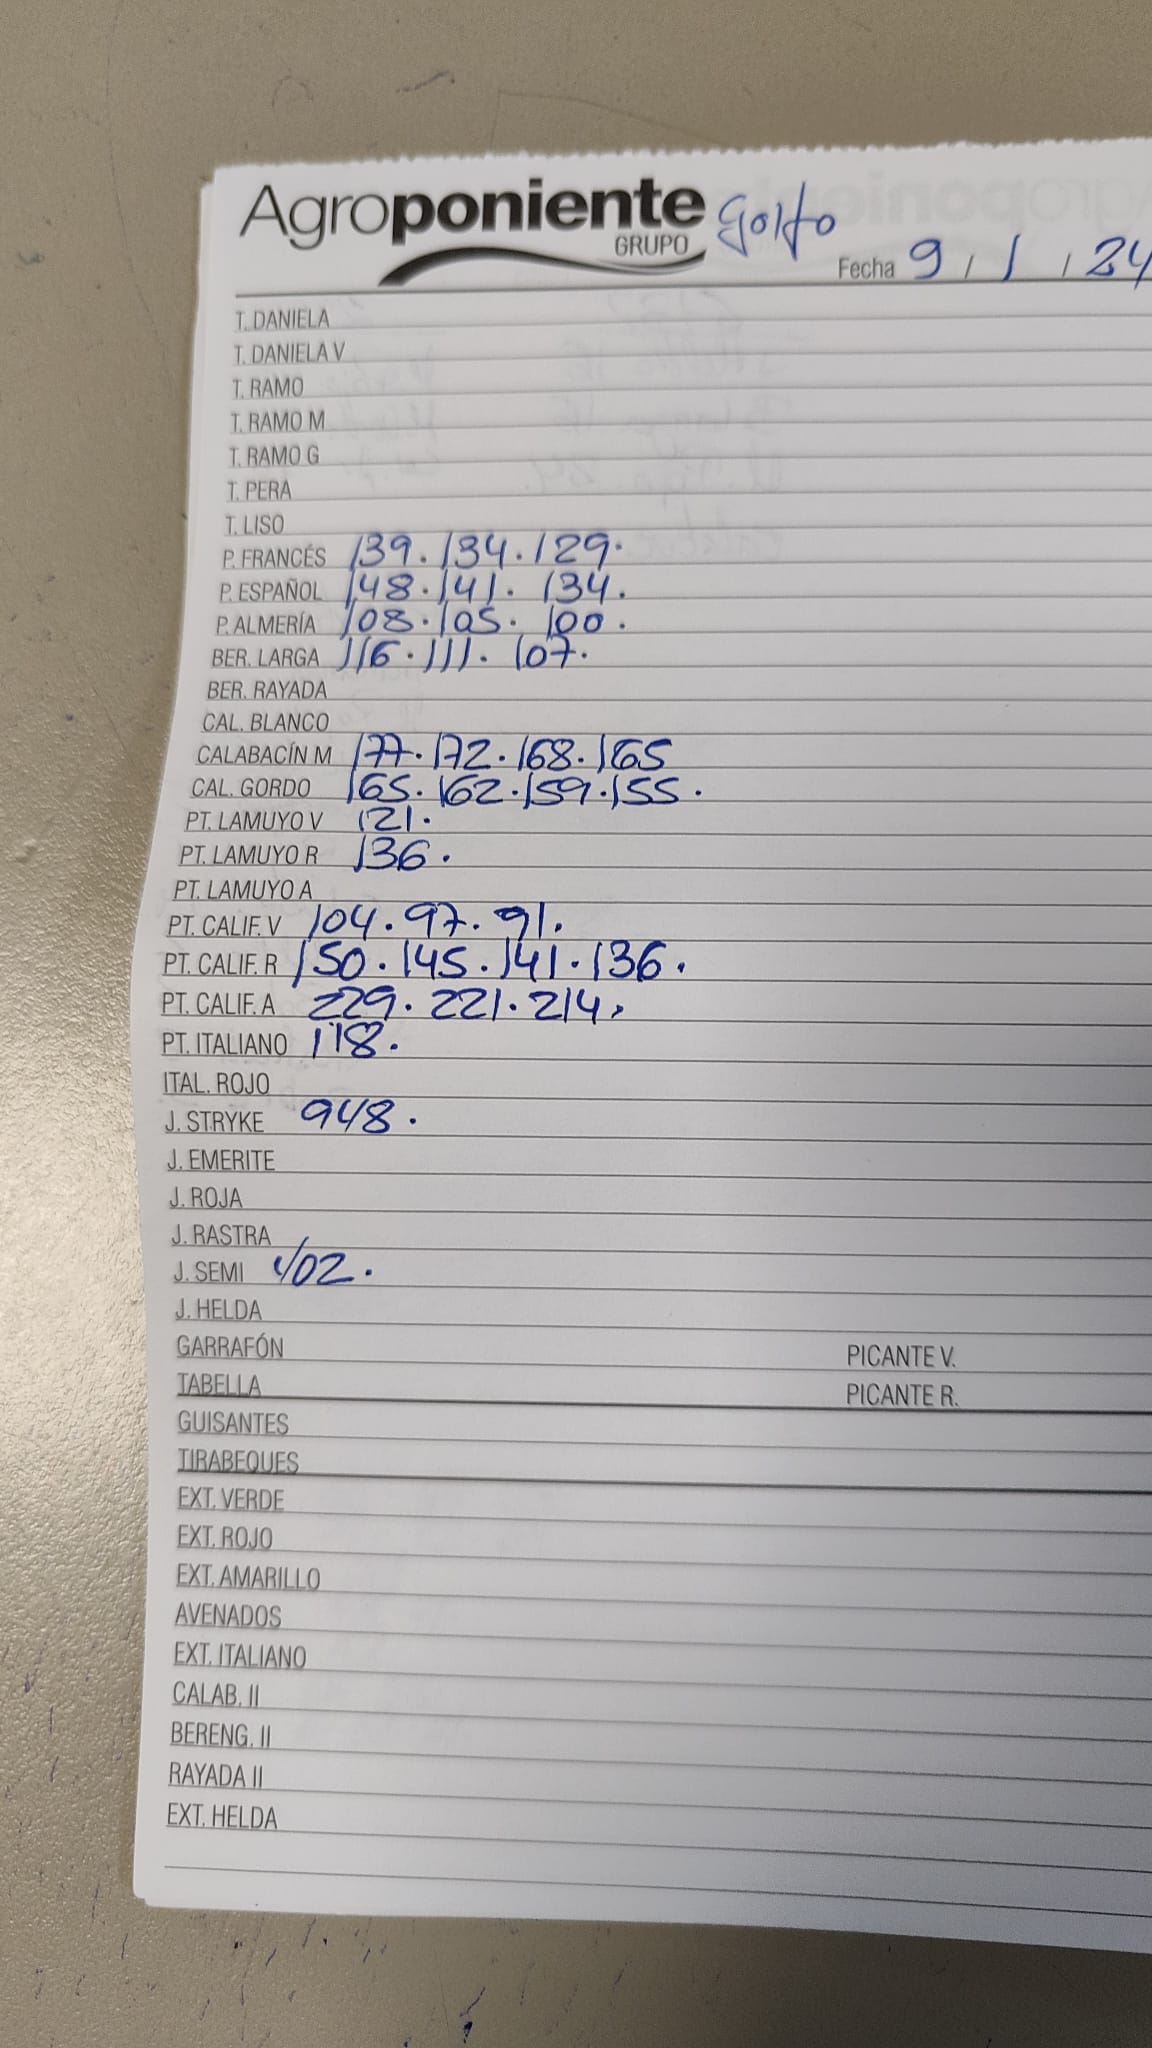 Agroponiente Golfo
GRUPO
Fecha 9 / 1 / 24
T. DANIELA
T. DANIELA V
T. RAMO
T. RAMO M
T. RAMO G
T. PERA
T. LISO
P. FRANCÉS 139. 134. 129.
P. ESPAÑOL 148. 141. 134.
P. ALMERÍA 108. 105. 100.
BER. LARGA 116. 111. 107.
BER. RAYADA
CAL. BLANCO
CALABACÍN M 177. 172. 168. 165
CAL. GORDO 165. 162. 159. 155.
PT. LAMUYO V 121.
PT. LAMUYO R 136.
PT. LAMUYO A
PT. CALIF. V 104. 97. 91.
PT. CALIF. R 150. 145. 141. 136.
PT. CALIF. A 229. 221. 214.
PT. ITALIANO 118.
ITAL. ROJO
J. STRYKE 948.
J. EMERITE
J. ROJA
J. RASTRA
J. SEMI 402.
J. HELDA
GARRAFÓN PICANTE V.
TABELLA PICANTE R.
GUISANTES
TIRABEQUES
EXT. VERDE
EXT. ROJO
EXT. AMARILLO
AVENADOS
EXT. ITALIANO
CALAB. II
BERENG. II
RAYADA II
EXT. HELDA